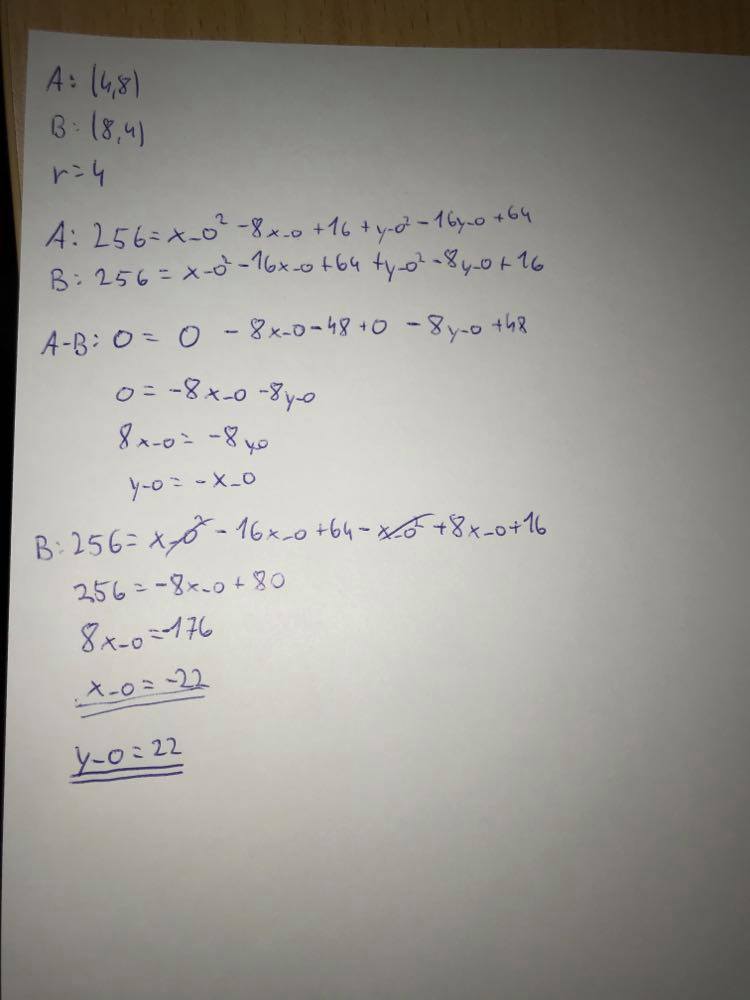 A: (4,8)
B: (8,4)
r=4
A: 256=x_0² -8x_0 +16 +y_0² -16y_0 +64
B: 256 = x_0² -16x_0 +64 +y_0² -8y_0 +16
A-B: 0 = 0 -8x_0 -48 +0 -8y_0 +48
0 = -8x_0 -8y_0
8x_0 = -8y_0
y_0 = -x_0
B: 256= x_0² -16x_0 +64 -x_0² +8x_0 +16
256 = -8x_0 + 80
8x_0 =-176
x_0 = -22
y_0 = 22